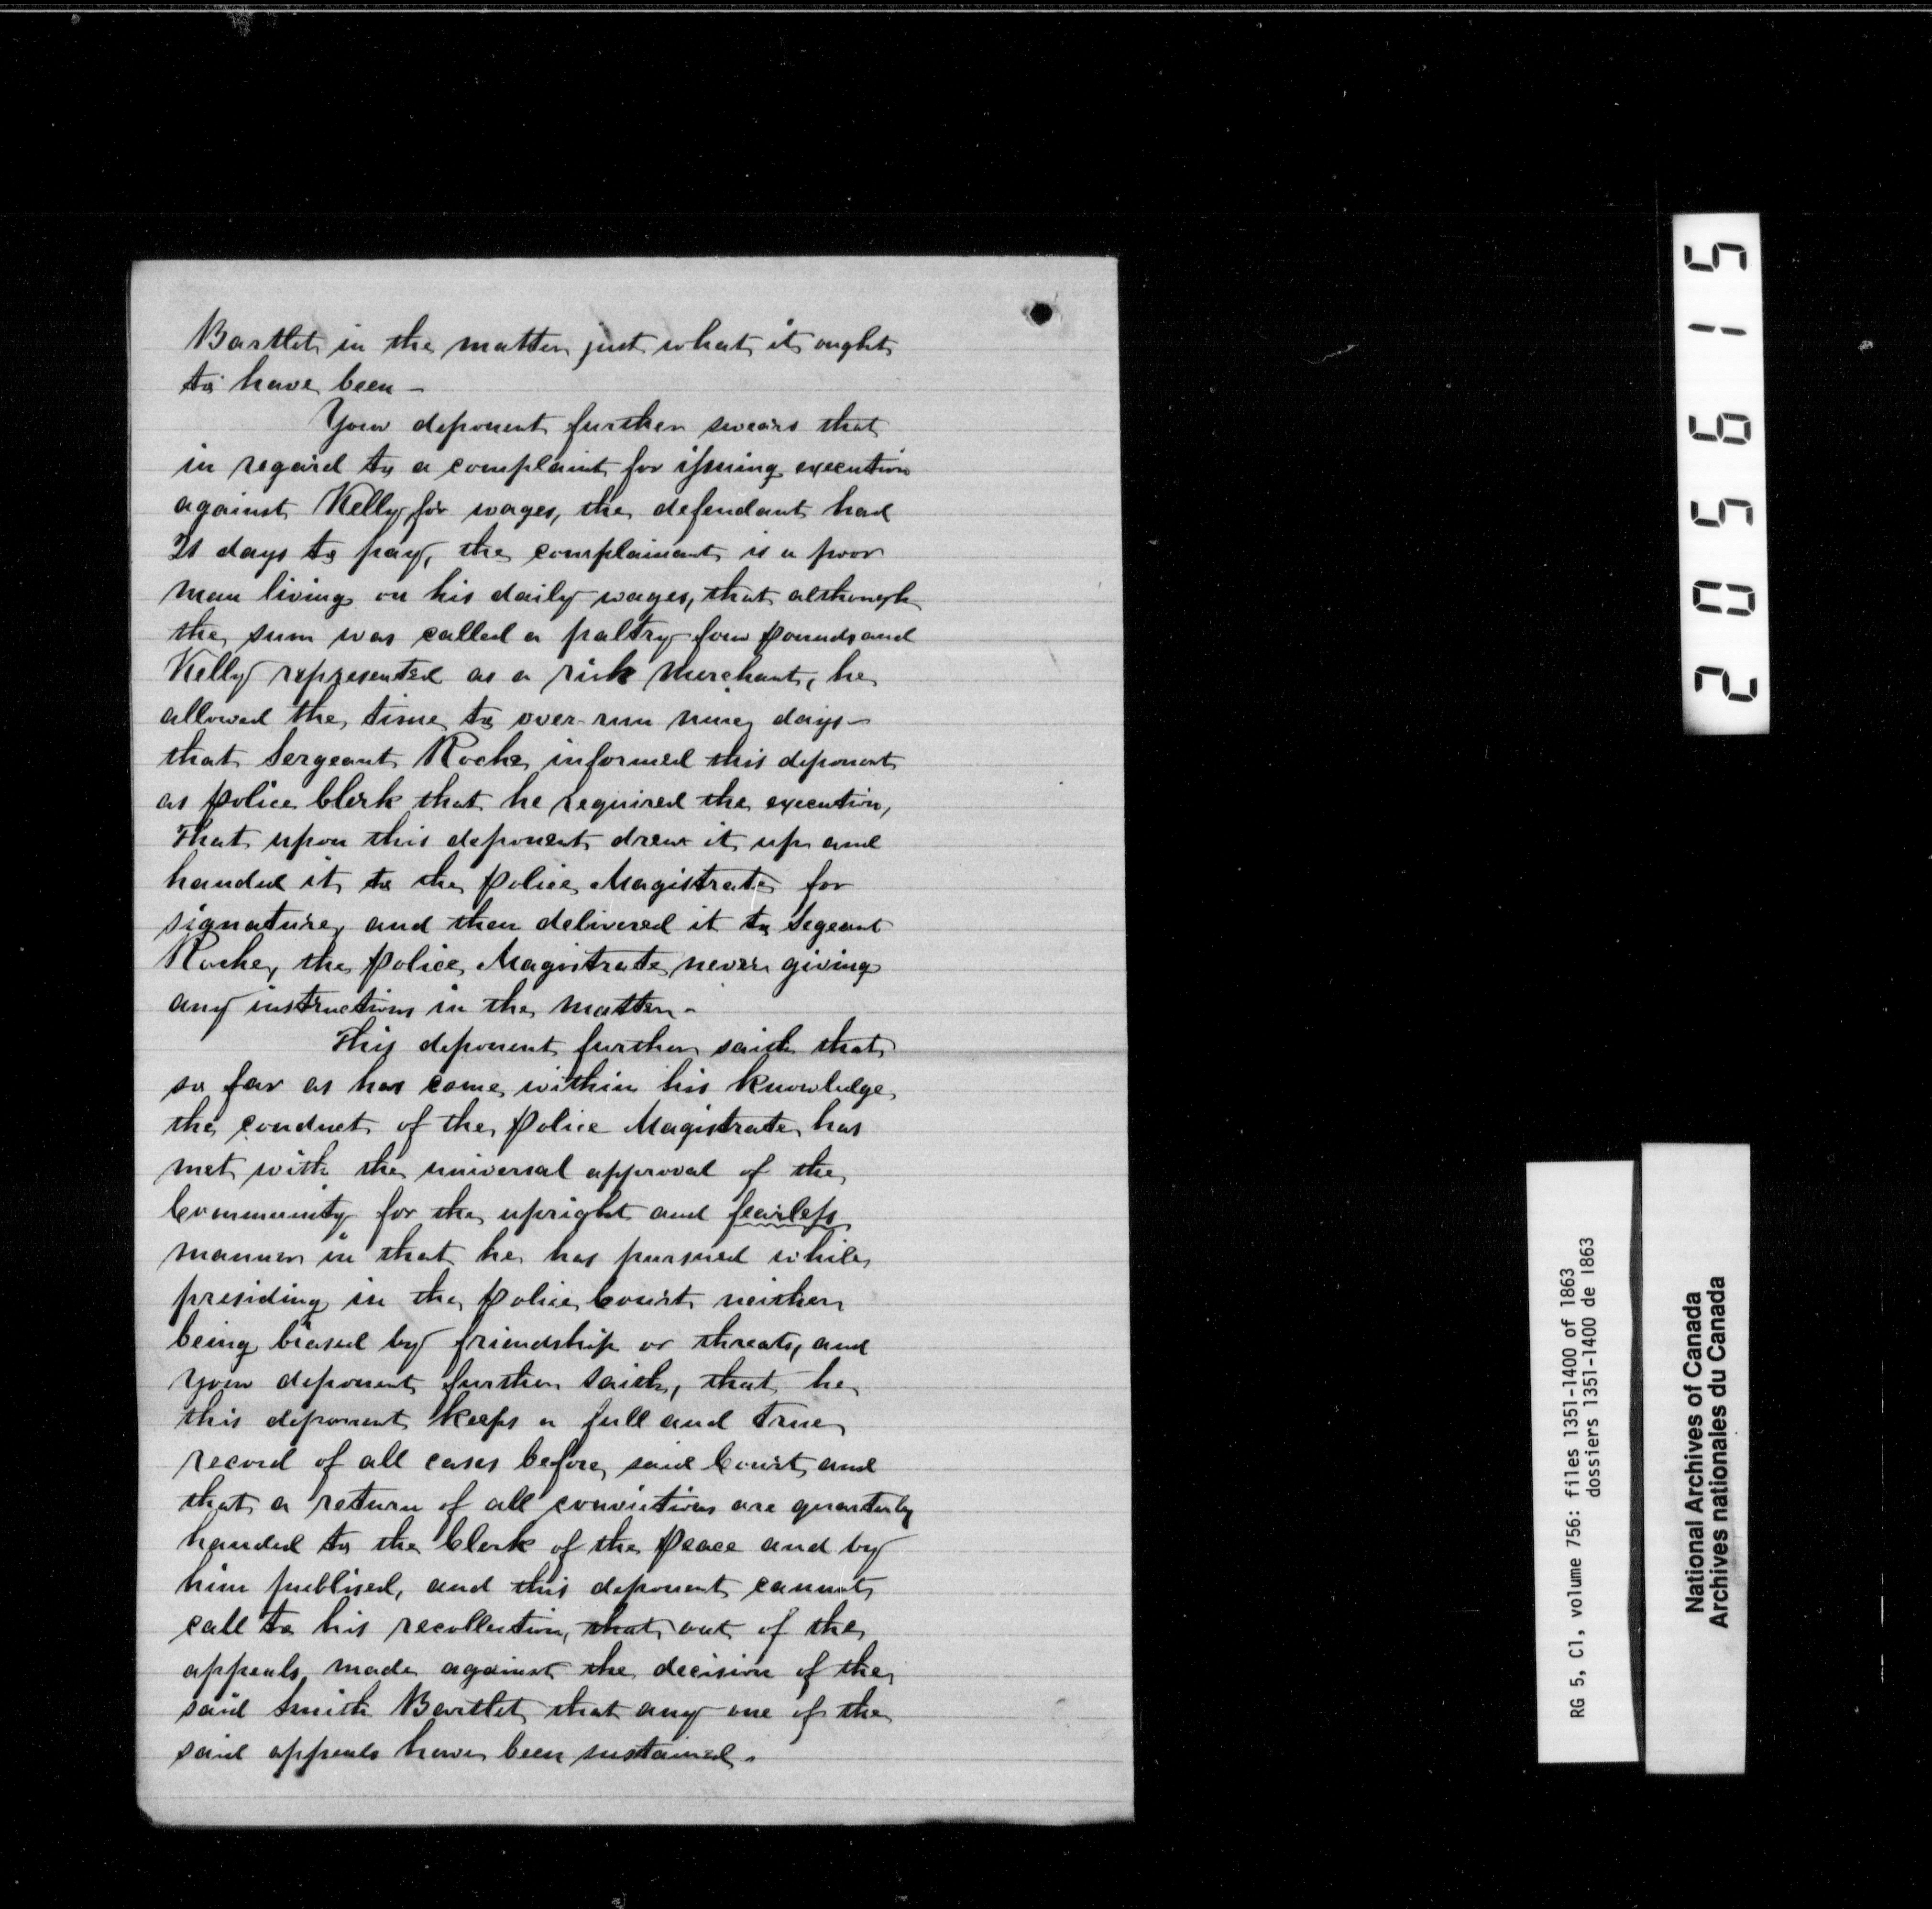 Bartlet in the matter just what it ought
to have been –
Your deponent further swears that
in regard to a complaint for issuing execution
against Kelly for wages, the defendant had
21 days to pay, the complainant is a poor
man living on his daily wages, that although
the sum was called a paltry four pounds and
Kelly represented as a rich Merchant, he
allowed the time to over-run nine days –
that Sergeant Roche informed this deponent
as police Clerk that he required the execution,
that upon this deponent drew it up and
handed it to the Police Magistrate for
signature, and then delivered it to Segeant
Roche, the Police Magistrate never giving
any instructions in the matter –
This deponent further saith that
so far as has come within his knowledge
the conduct of the Police Magistrate has
met with the universal approval of the
Community for the upright and fearless
manner in that he has pursued while
presiding in the Police Court neither
being biased by friendship or threats, and
your deponent further saith, that he
this deponent keeps a full and true
record of all cases before said Court and
that a return of all convictions are quarterly
handed to the Clerk of the Peace and by
him publised, and this deponent cannot
call to his recollection, that out of the
appeals made against the decision of the
said Smith Bartlet that any one of the
said appeals have been sustained.
205615
RG 5, C1, volume 756: files 1351-1400 of 1863
dossiers 1351-1400 de 1863
National Archives of Canada
Archives nationales du Canada